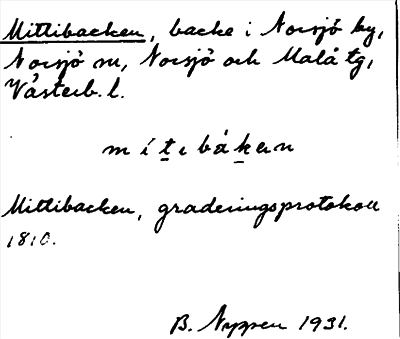 Mittibacken, backe i Norsjö by,
Norsjö sn, Norsjö och Malå tg,
Västerb. l.
mítıbákɐn
Mittibacken, graderingsprotokoll
1810.
B. Nyppen 1931.